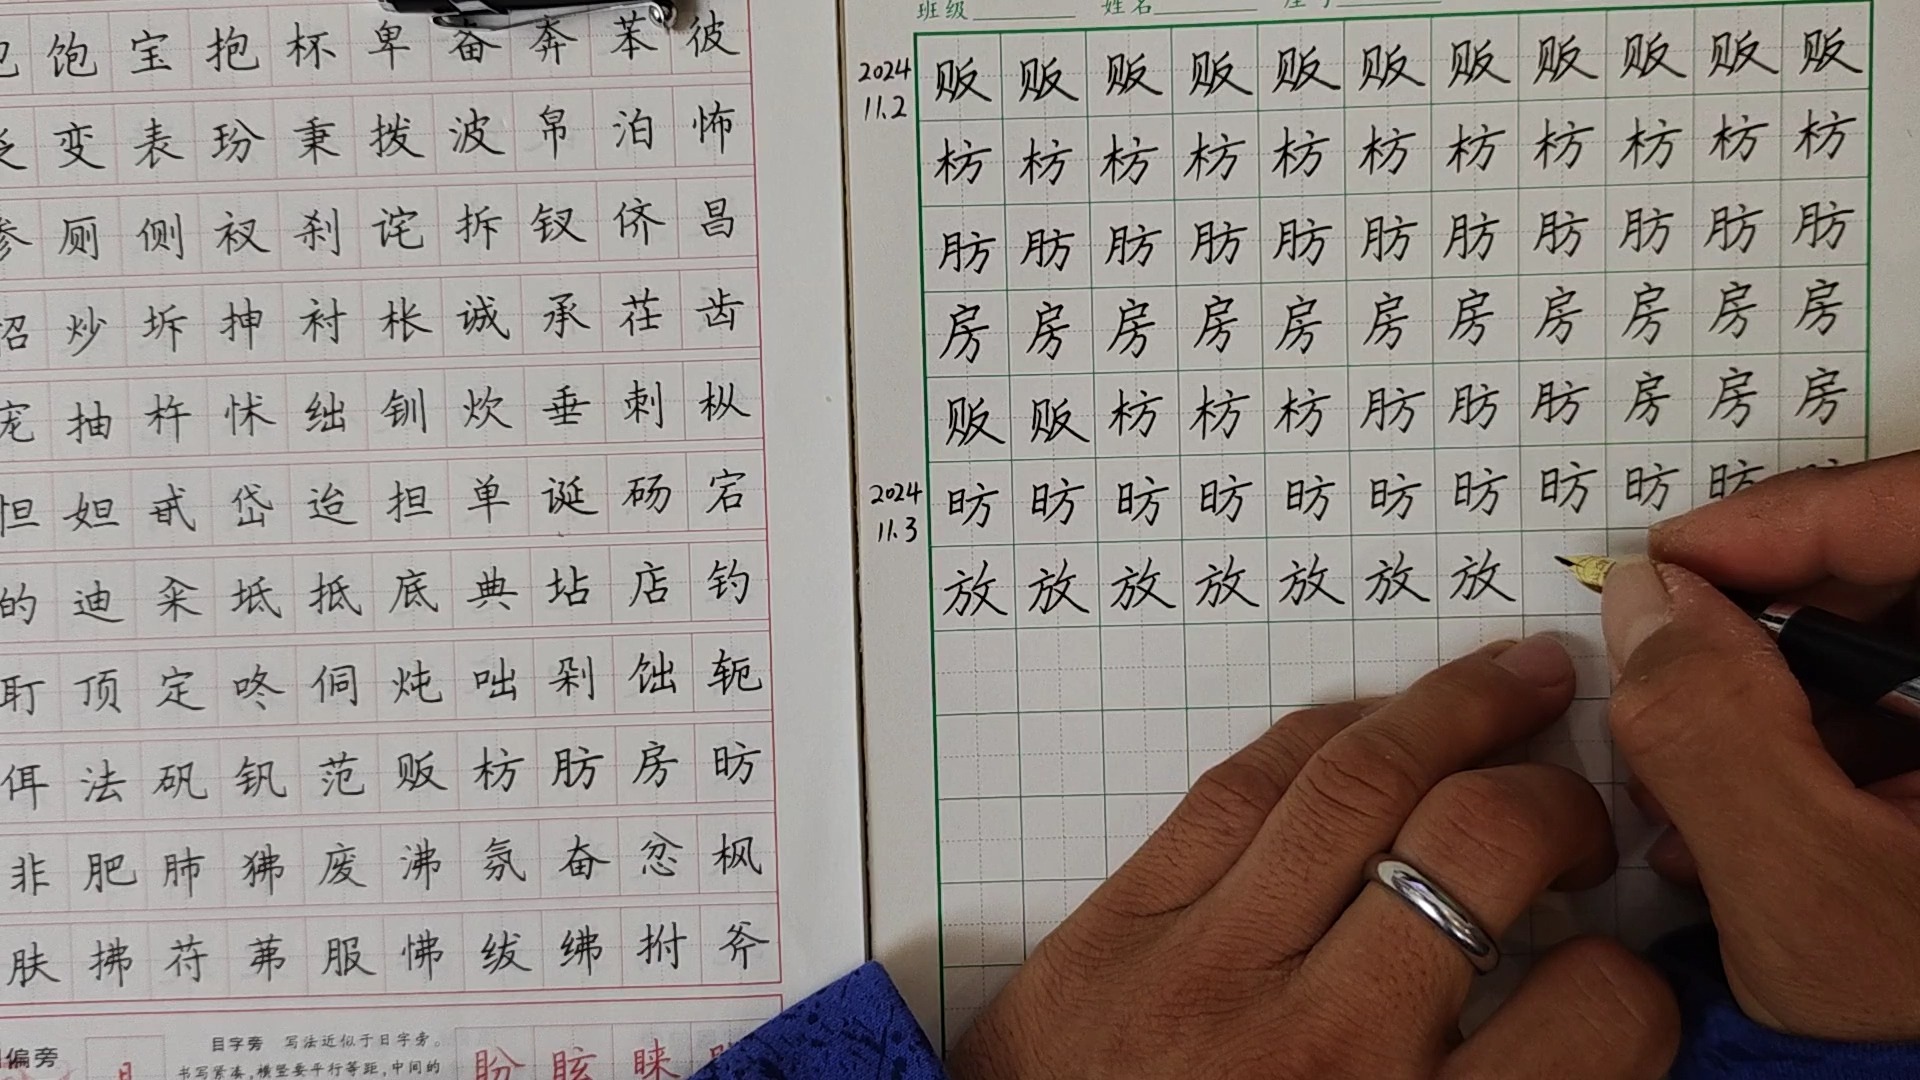 饱 宝 抱 杯 卑 备 奔 苯 彼
变 表 玢 秉 拨 波 帛 泊 怖
参 厕 侧 衩 刹 诧 拆 钗 侪 昌
炒 坼 抻 衬 枨 诚 承 茌 齿
宠 抽 杵 怵 绌 钏 炊 垂 刺 枞
怛 妲 甙 岱 迨 担 单 诞 砀 宕
的 迪 籴 坻 抵 底 典 坫 店 钓
耵 顶 定 咚 侗 炖 咄 剁 饳 轭
佴 法 矾 钒 范 贩 枋 肪 房 昉
非 肥 肺 狒 废 沸 氛 奋 忿 枫
肤 拂 苻 茀 服 怫 绂 绋 拊 斧
偏旁
目字旁 写法近似于日字旁。
书写紧凑,横竖要平行等距,中间的
盼 眩 睐
班级 姓名
2024
11.2
贩 贩 贩 贩 贩 贩 贩 贩 贩 贩 贩
枋 枋 枋 枋 枋 枋 枋 枋 枋 枋 枋
肪 肪 肪 肪 肪 肪 肪 肪 肪 肪 肪
房 房 房 房 房 房 房 房 房 房 房
贩 贩 枋 枋 枋 肪 肪 肪 房 房 房
2024
11.3
昉 昉 昉 昉 昉 昉 昉 昉 昉 昉
放 放 放 放 放 放 放